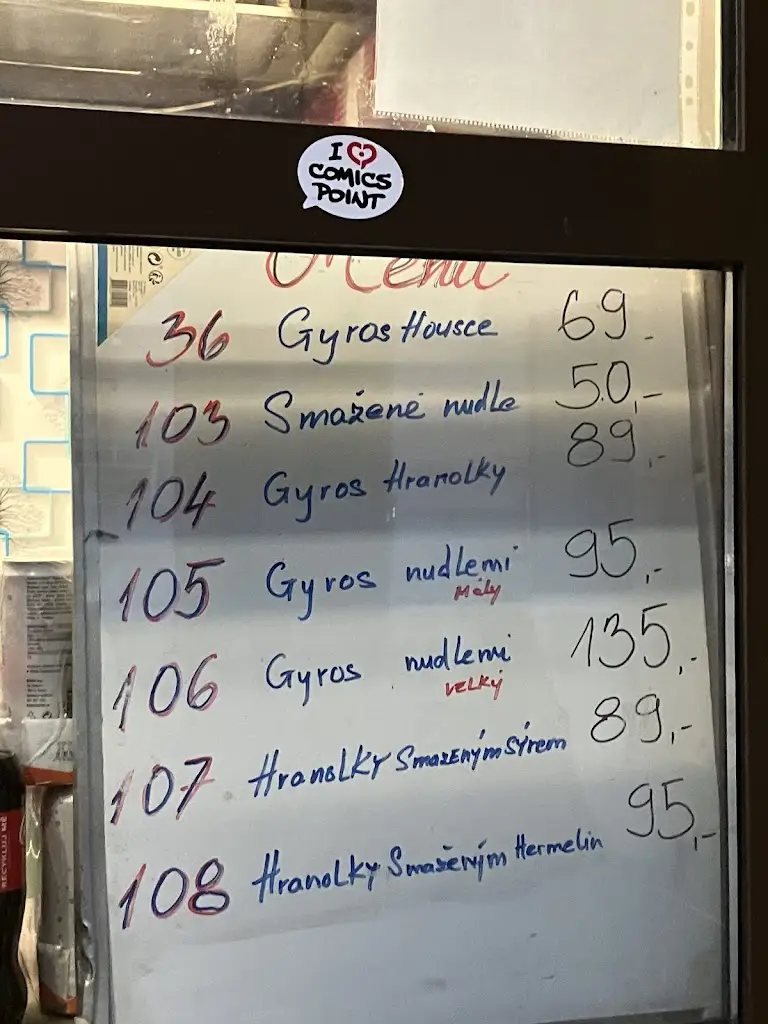 I
COMICS
POINT
Menu
36 Gyros Housce 69.-
103 Smažené nudle 50,-
104 Gyros Hranolky 89,-
105 Gyros nudlemi 95,-
Malý
106 Gyros nudlemi 135,-
velký
107 Hranolky Smaženým Sýrem 89,-
108 Hranolky Smaženým Hermelin 95,-
RECYKLUJ MĚ